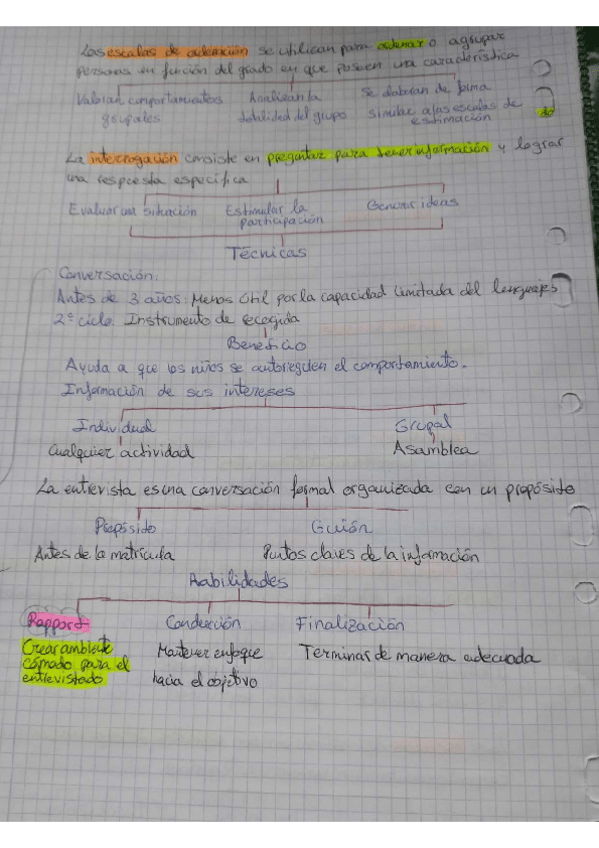 Las escalas de ordenación se utilizan para ordenar o agrupar
personas en función del grado en que poseen una característica
Valoran comportamientos grupales
Analizan la totalidad del grupo
Se elaboran de forma similar a las escalas de estimación
do
La interrogación consiste en preguntar para tener información y lograr
una respuesta específica
Evaluar una situación
Estimular la participación
Generar ideas
Técnicas
Conversación:
Antes de 3 años: Menos útil por la capacidad limitada del lenguaje
2º ciclo: Instrumento de recogida
Beneficio
Ayuda a que los niños se autorregulen el comportamiento.
Información de sus intereses
Individual
Grupal
Cualquier actividad
Asamblea
La entrevista es una conversación formal organizada con un propósito
Propósito
Guión
Antes de la matrícula
Puntos claves de la información
Habilidades
Rapport
Conducción
Finalización
Crear ambiente
cómodo para el
entrevistado
Mantener enfoque
hacia el objetivo
Terminar de manera adecuada